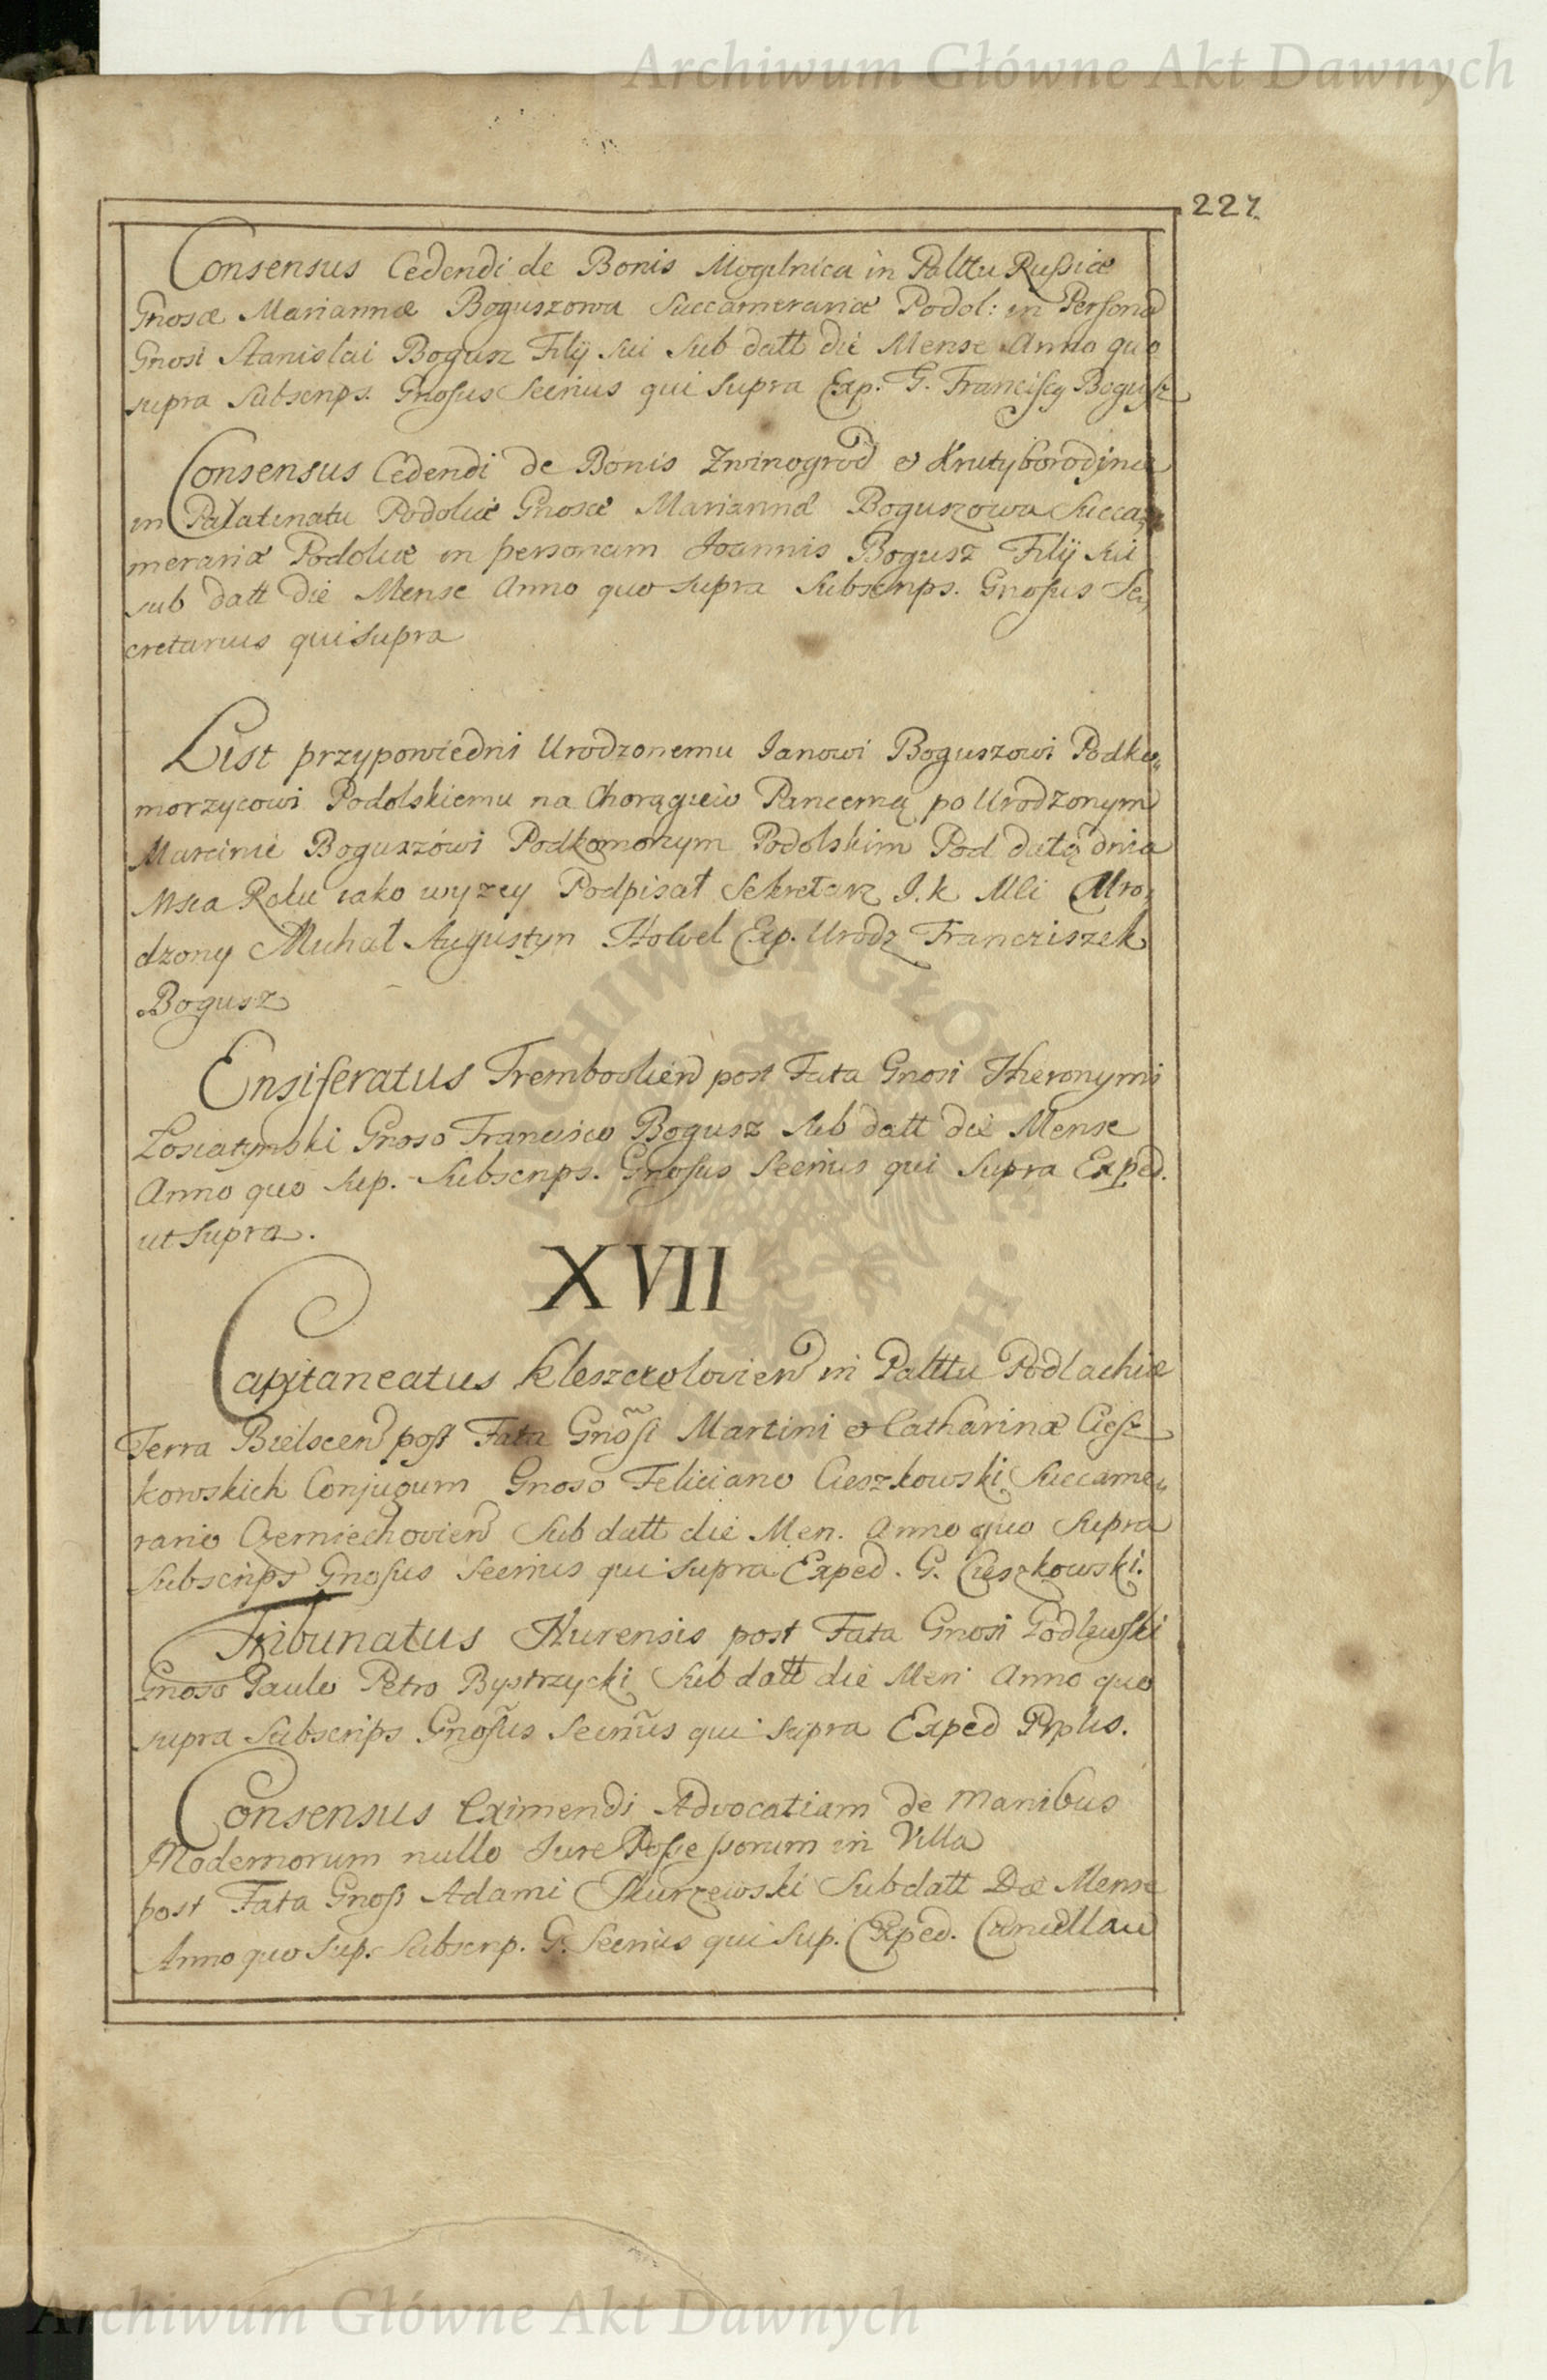 Archiwum Główne Akt Dawnych
227.
Consensus Cedendi de Bonis Mogilnica in Palttu Russiæ
Gnosæ Mariannæ Boguszowa Succamerariæ Podol: in Personã
Gnosi Stanislai Bogusz Filÿ sui Sub datt die Mense Anno quo
supra Subscrips. Gnosus Secrius qui Supra Exp. G. Franciscy Bogusz
Consensus Cedendi de Bonis Zwinogrod et Krutyborodyna
in Palatinatu Podoliæ Gnosæ Mariannæ Boguszowa Succa„
merariæ Podoliæ in personam Joannis Bogusz Filÿ sui
sub datt die Mense Anno quo supra Subscrips. Gnosus Se„
cretarius qui supra
List przypowiedni Urodzonemu Janowi Boguszowi Podko„
morzycowi Podolskiemu na Chorągiew Pancerną po Urodzonym
Marcinie Boguszówi Podkomorzym Podolskim Pod datą dnia
Msca Roku iako wyzey Podpisał Sekretarz J. k Mci Uro„
dzony Michał Augustyn Exp. Urodz Franciszek
Bogusz
Ensiferatus Tremboulien post Fata Gnosi Hieronymi
Losiatynski Gnoso Francisco Bogusz Sub datt die Mense
Anno quo sup. Subscrips. Gnosus Secrius qui Supra Exped.
ut Supra.
XVII
Capitaneatus Kleszczelovien in Palttu Podlachiæ
Terra Bielscen post Fata Gnosi Martini et Catharinæ Ciesz
kowskich Conjugum Gnoso Feliciano Cieszkowski Succame„
rario Czerniechovien Sub datt die Men. Anno quo Supra
Subscrips Gnosus Secrius qui supra Exped. G. Cieszkowski.
Tribunatus Nurensis post Fata Gnosi Godlewski
Gnoso Paulo Petro Bystrzycki Sub datt die Men Anno quo
supra Subscrips Gnosus Secrius qui supra Exped Pplus.
Consensus Eximendi Advocatiam de manibus
Modernorum nullo Jure Possessorum in Villa
post Fata Gnosi Adami Skurzewski Sub datt Die Mense
Anno quo Sup. Subscrip. G. Secrius qui Sup. Exped. Cancellau
Archiwum Główne Akt Dawnych